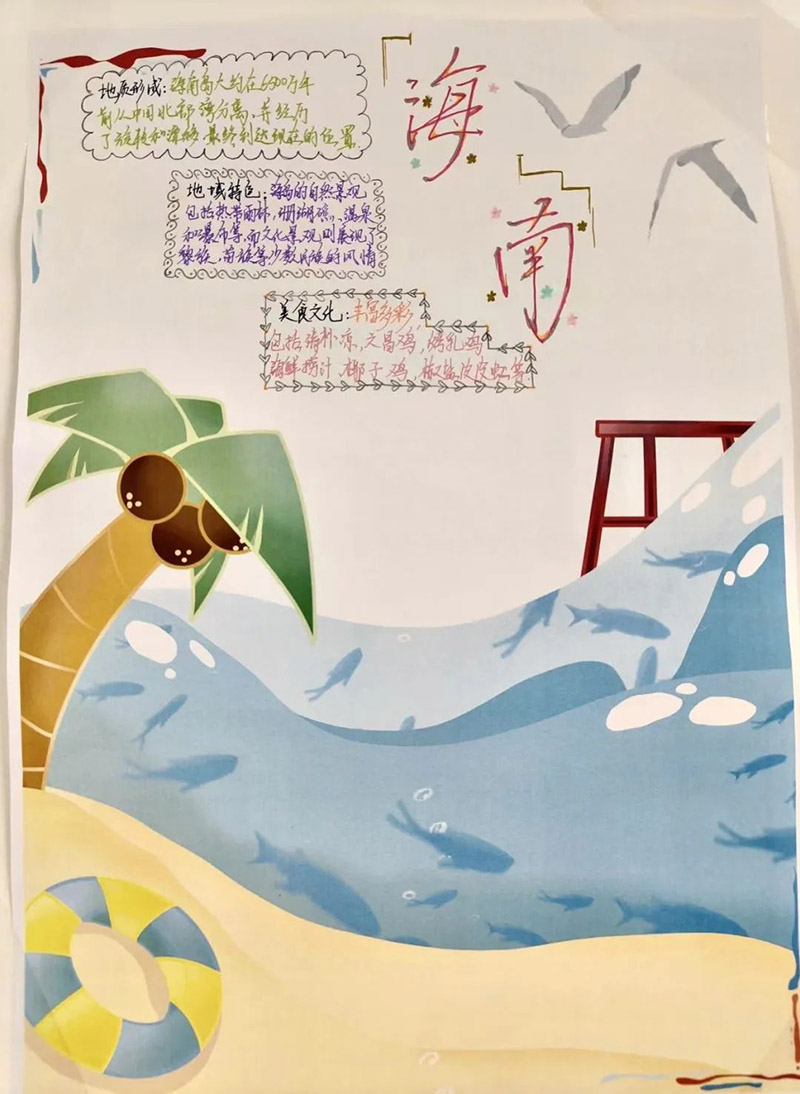 海
南
地质形成:海南岛大约在6500万年
前从中国北部湾分离,并经历
了旋转和漂移 最终到达现在的位置.
地域特色:海岛的自然景观
包括热带雨林,珊瑚礁、温泉
和瀑布等,而文化景观则展现了
黎族、苗族等少数民族的风情
美食文化:丰富多彩
包括清朴凉,文昌鸡,烤乳鸡
海鲜捞汁,椰子鸡,椒盐皮皮虾等